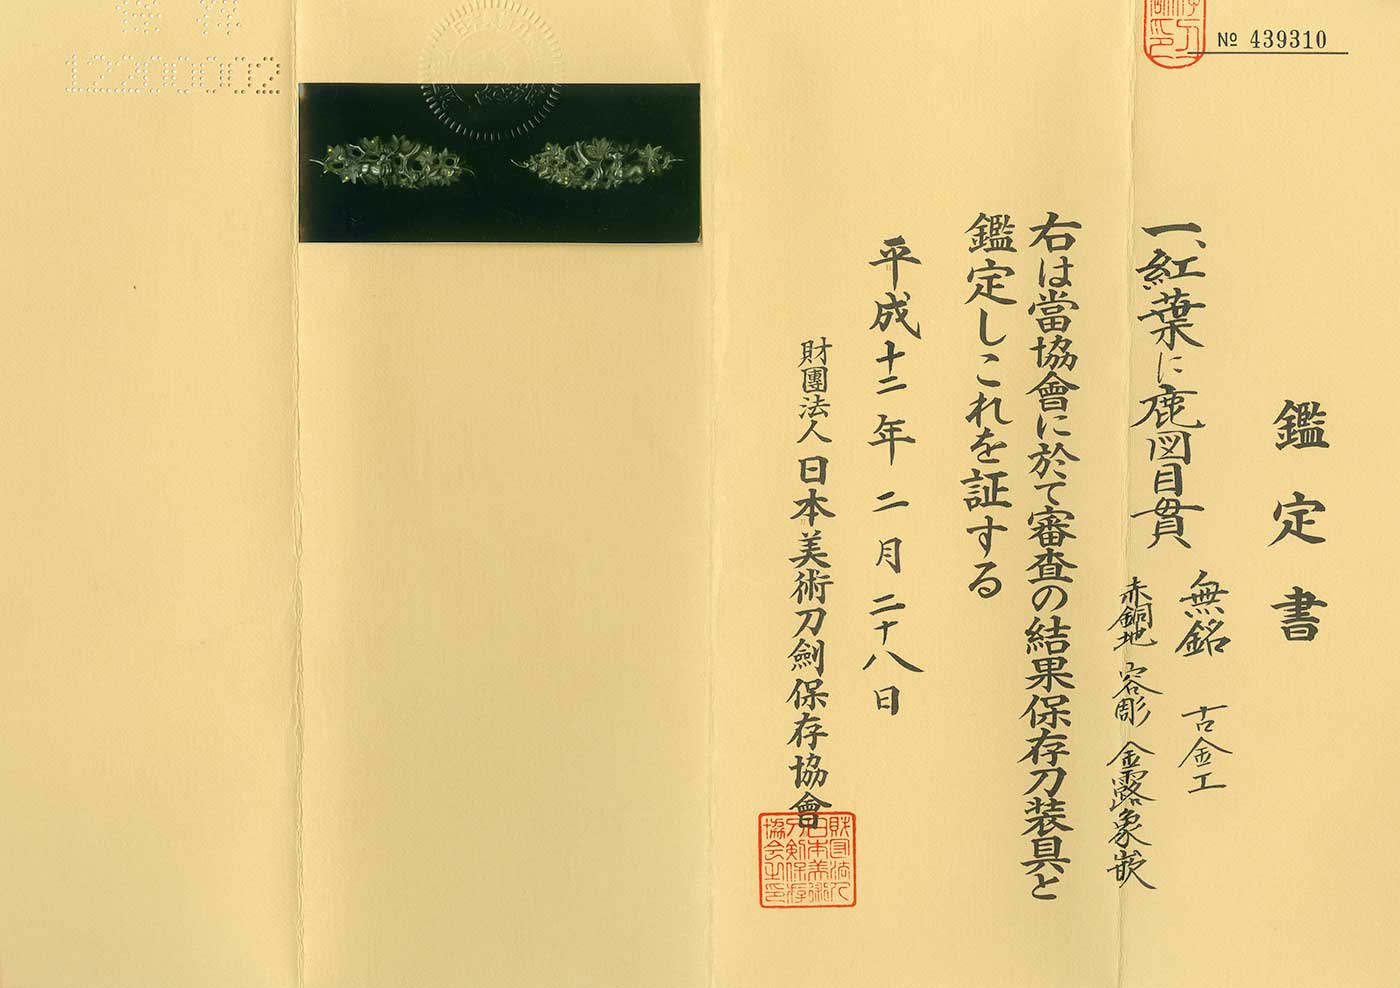 № 439310
鑑定書
一、紅葉に鹿図目貫
無銘 古金工
赤銅地 容彫 金露象嵌
右は當協會に於て審査の結果保存刀装具と
鑑定しこれを証する
平成十二年二月二十八日
財團法人日本美術刀劍保存協會
財団法人
日本美術
刀剣保存
協会之印
保存
12200002